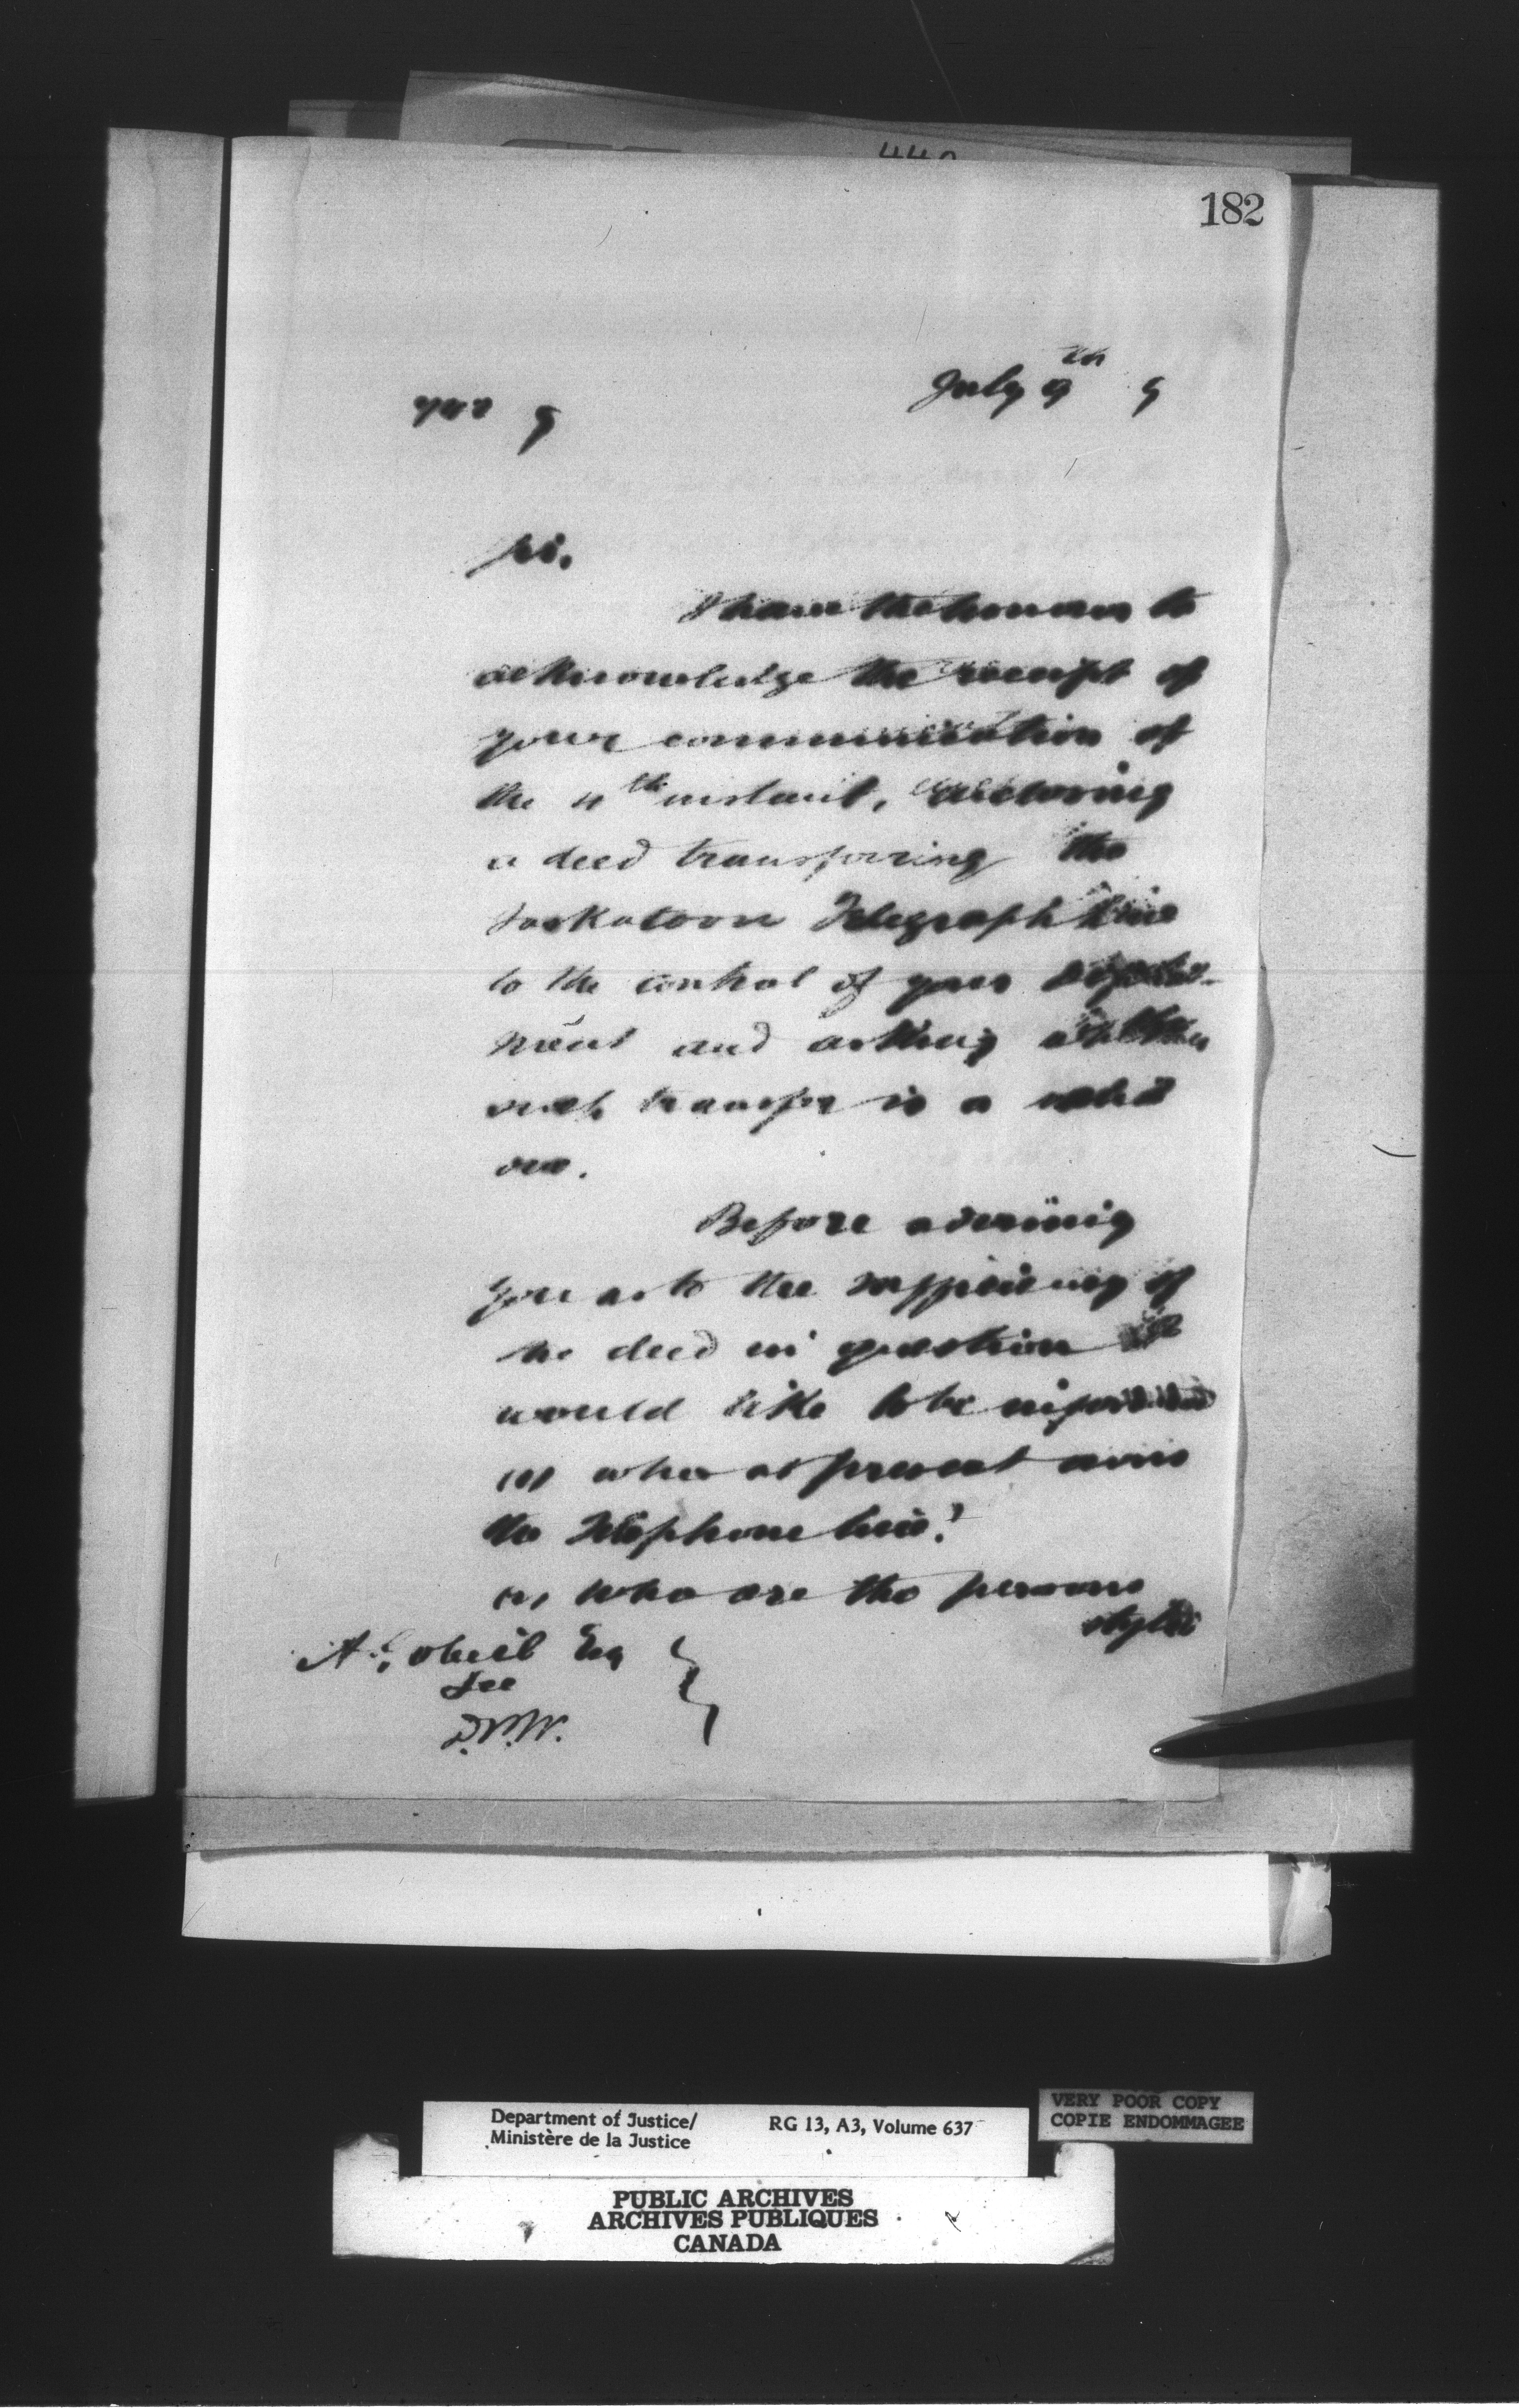 182
July 9th 9
9
Sir,
I have the honour to
acknowledge the receipt of
your communication of
the 4th instant, enclosing
a deed transferring the
Saskatoon Telegraph line
to the control of your Depart-
ment and asking whether
such transfer is a valid
one.
Before advising
you as to the sufficiency of
the deed in question I
would like to be informed
(1) who at present owns
the Telephone line?
(2) who are the persons
styled
A. Gobeil Esq
Sec
D.P.W.
Department of Justice/
Ministère de la Justice
RG 13, A3, Volume 637
VERY POOR COPY
COPIE ENDOMMAGEE
PUBLIC ARCHIVES
ARCHIVES PUBLIQUES
CANADA